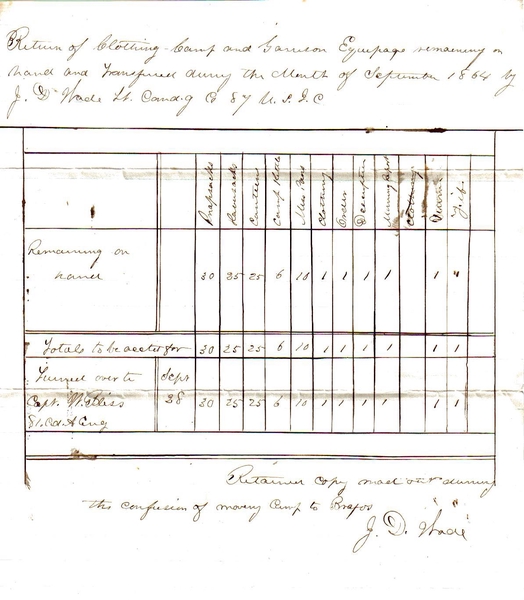 Return of Clothing Camp and Garrison Equipage remaining on
hand and transfered during the Month of September 1864 by
J. D. Wade Lt. Comd.g Co 87 U.S.I.C
Knapsacks Haversacks Canteens Camp Kettles Mess Pans Clothing Order Descriptive Clothing
Remaining on
hand 30 25 25 6 10 1 1 1 1 1 "
Totals to be acctd for 30 25 25 6 10 1 1 1 1 1 1
Turned over to Sept
Capt. 28 30 25 25 6 10 1 1 1 1 1 1
Retained copy made out during
the confusion of moving Camp to Brazos " "
J. D. Wade